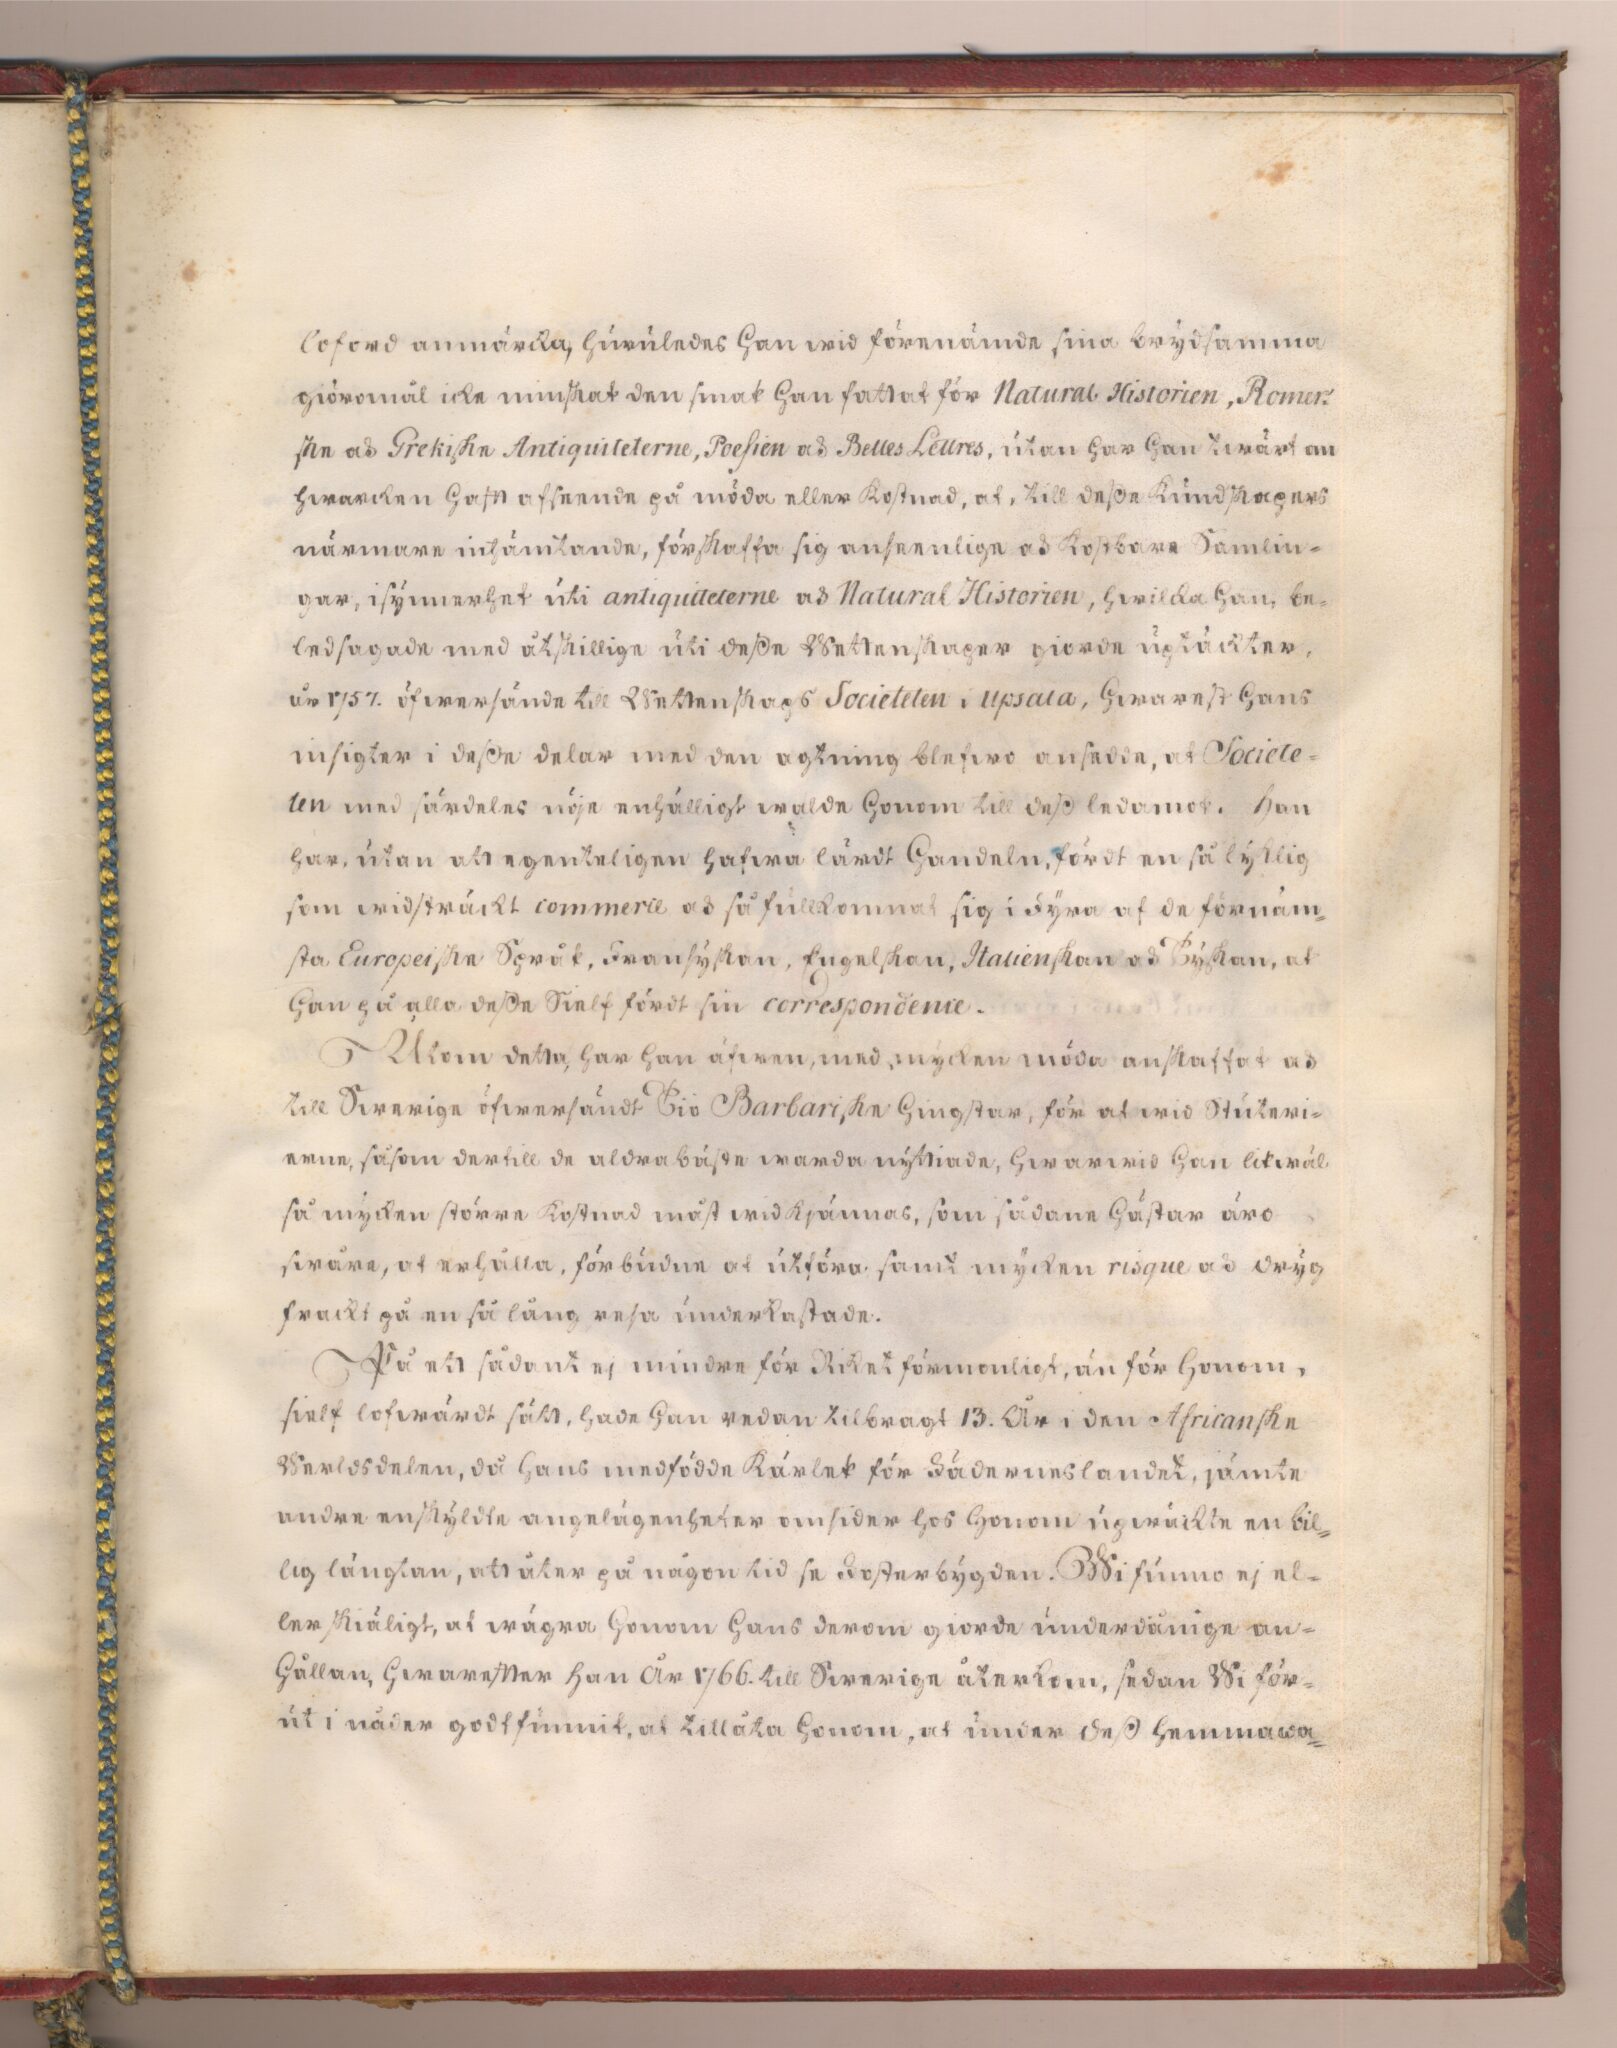 loford anmärcka, huruledes Han wid förenämde sina brydsamma
giöromål icke minskat den smak Han fattat för Natural Historien, Romer-
ske och Grekiske Antiquiteterne, Poesien och Belles Lettres, utan har Han twärt om
hwarcken Haft afseende på möda eller Kostnad, at, till desse Kundskapers
närmare inhämtande, förskaffa sig anseenlige och Kostbare Samlin-
gar, isynnerhet uti antiquiteterne och Natural Historien, hwilka Han, be-
ledsagade med åtskillige uti desse Wettenskaper giorde uptäckter,
år 1757. öfwersände till Wettenskaps Societeten i Upsala, Hwarest Hans
insigter i desse delar med den agtning blefwo ansedde, at Societe-
ten med särdeles nöje enhälligt walde Honom till dess ledamot. Han
har, utan att egenteligen hafwa lärdt Handeln, fördt en så lyklig
som widsträckt commerce och så fullkomnat sig i Fyra af de förnäm-
sta Europeiske Språk, Fransyskan, Engelskan, Italienskan och Tyskan, at
Han på alla desse Sielf fördt sin correspondence.
Utom detta, har Han äfwen, med mycken möda anskaffat och
till Swerige öfwersändt Tio Barbariske Hingstar, för at wid Stuteri-
erne, såsom dertill de aldrabäste warda nyttiade, Hwarwid Han likwäl
så mycken större Kostnad måst widkjännas, som sådane Hästar äro
swåre, at erhålla, förbudne at utföra samt mycken risque och dryg
frackt på en så lång resa underkastade.
På ett sådant ej mindre för Riket förmonligt, än för Honom,
sielf lofwärdt sätt, hade Han redan tilbragt 13. År i den Africanske
Werldsdelen, då Hans medfödde Kärlek för Fäderneslandet, jämte
andre enskyldte angelägenheter omsider hos Honom upwäckte en bil-
lig längtan, att åter på någon tid se Fosterbygden. Wi funno ej el-
ler skiäligt, at wägra Honom Hans derom giorde underdånige an-
Hållan, Hwarefter Han År 1766. till Swerige återkom, sedan Wi för-
ut i nåder godtfunnit, at tillåta Honom, at under dess hemmawa-